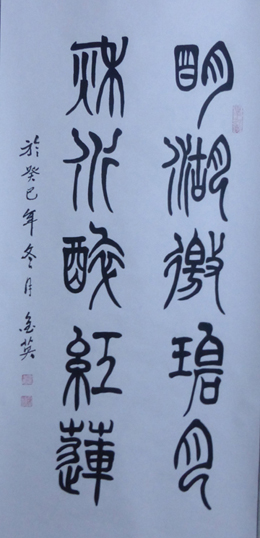 明湖碧月
秋水醉紅蓮
於癸巳年冬月英